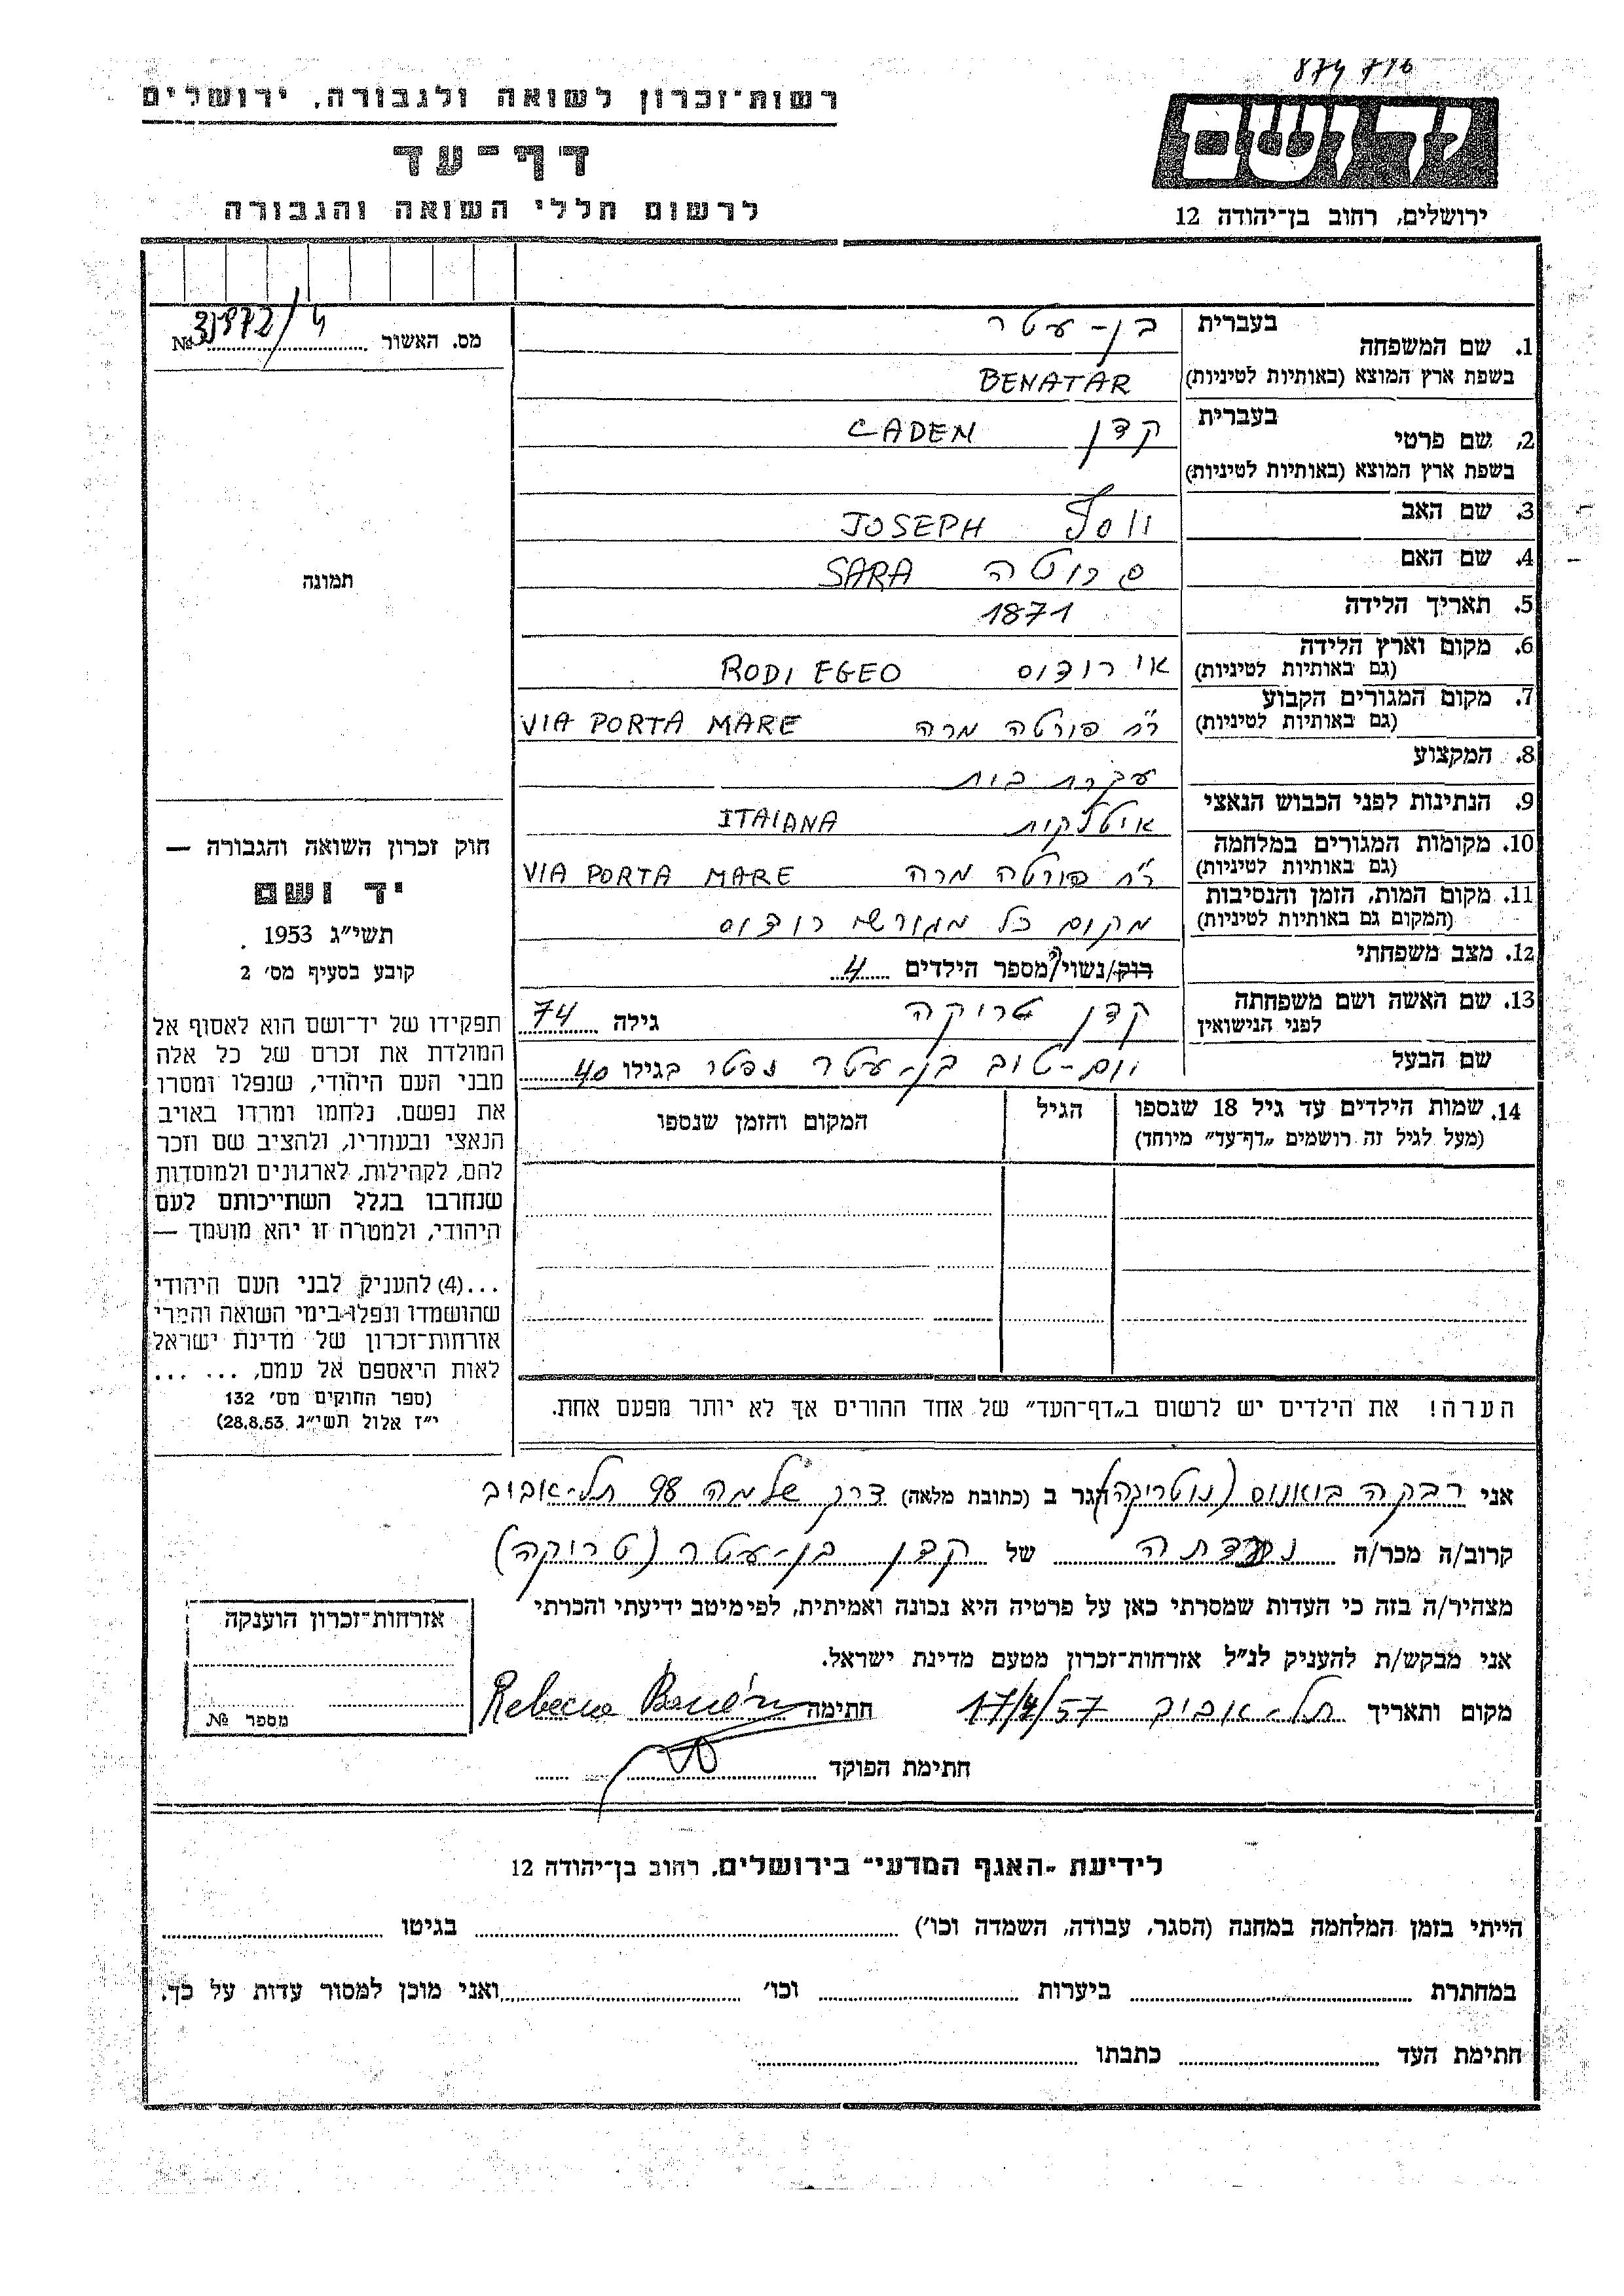 874 716
רשות־זכרון לשואה ולגבורה, ירושלים
דף־עד
לרשום חללי השואה והגבורה
יד ושם
ירושלים, רחוב בן־יהודה 12
מס. האשור №
1. שם המשפחה בעברית בן-עטר
בשפת ארץ המוצא (באותיות לטיניות) BENATAR
2. שם פרטי בעברית קדן CADEN
בשפת ארץ המוצא (באותיות לטיניות)
3. שם האב יוסף JOSEPH
4. שם האם SARA
5. תאריך הלידה 1871
6. מקום וארץ הלידה אי רודוס RODI EGEO
(גם באותיות לטיניות)
7. מקום המגורים הקבוע רח' פורטה מרה VIA PORTA MARE
(גם באותיות לטיניות)
8. המקצוע עקרת בית
9. הנתינות לפני הכבוש הנאצי איטלקית ITAIANA
10. מקומות המגורים במלחמה רח' פורטה מרה VIA PORTA MARE
(גם באותיות לטיניות)
11. מקום המות, הזמן והנסיבות מקום כל מגורשי רודוס
(המקום גם באותיות לטיניות)
12. מצב משפחתי רווק/נשוי/מספר הילדים 4
13. שם האשה ושם משפחתה קדן טריקה גילה 74
לפני הנישואין
שם הבעל יום-טוב בן-עטר נפטר בגילו 40
14. שמות הילדים עד גיל 18 שנספו הגיל המקום והזמן שנספו
(מעל לגיל זה רושמים „דף־עד" מיוחד)
הערה! את הילדים יש לרשום ב„דף־העד" של אחד ההורים אך לא יותר מפעם אחת.
תמונה
חוק זכרון השואה והגבורה —
יד ושם
תשי"ג 1953
קובע בסעיף מס' 2
תפקידו של יד־ושם הוא לאסוף אל
המולדת את זכרם של כל אלה
מבני העם היהודי, שנפלו ומסרו
את נפשם, נלחמו ומרדו באויב
הנאצי ובעוזריו, ולהציב שם וזכר
להם, לקהילות, לארגונים ולמוסדות
שנחרבו בגלל השתייכותם לעם
היהודי, ולמטרה זו יהא מוסמך —
...(4) להעניק לבני העם היהודי
שהושמדו ונפלו בימי השואה והמרי
אזרחות־זכרון של מדינת ישראל
לאות היאספם אל עמם, ... ...
(ספר החוקים מס' 132
י"ז אלול תשי"ג 28.8.53)
אני רבקה הגר ב (כתובת מלאה) דרך שלמה 98 תל-אביב
קרוב/ה מכר/ה נכדתה של קדן בן-עטר (טריקה)
מצהיר/ה בזה כי העדות שמסרתי כאן על פרטיה היא נכונה ואמיתית, לפי מיטב ידיעתי והכרתי
אני מבקש/ת להעניק לנ"ל אזרחות־זכרון מטעם מדינת ישראל.
מקום ותאריך תל-אביב 17/4/57 חתימה Rebecca
חתימת הפוקד
אזרחות־זכרון הוענקה
מספר №
לידיעת „האגף המדעי" בירושלים, רחוב בן־יהודה 12
הייתי בזמן המלחמה במחנה (הסגר, עבודה, השמדה וכו') בגיטו
במחתרת ביערות וכו' ואני מוכן למסור עדות על כך.
חתימת העד כתבתו